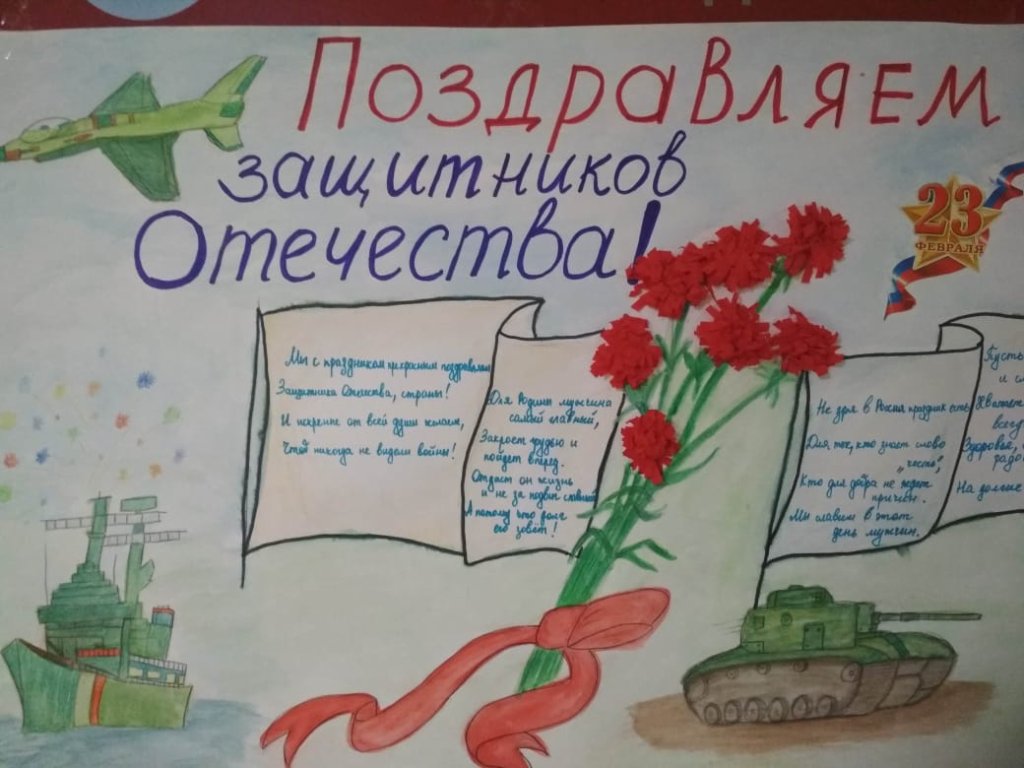 Поздравляем
защитников
Отечества!
23
ФЕВРАЛЯ
Мы с праздником прекрасным поздравляем
Защитника Отечества, страны!
И искренне от всей души желаем,
Чтоб никогда не видали войны!
Для Родины мужчина
самый главный,
Закроет грудью и
пойдет вперед.
Отдаст он жизнь
и не за подвиг славный
А потому что долг
его зовёт!
Не зря в России праздник есть
Для тех, кто знает слово
"честь",
Кто для добра не ищет
причин.
Мы славим в этот
день мужчин.
Пусть
и с
Хватает
всегд
Здоровья,
радо
На долгие